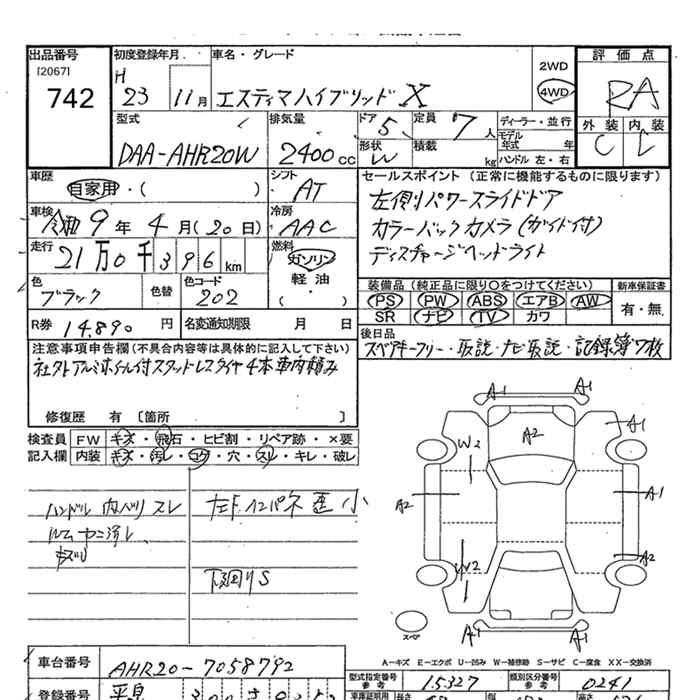 出品番号
[2067]
742
初度登録年月
H
23 11月
車名・グレード
エスティマハイブリッド X
2WD
4WD
評価点
RA
外装 内装
C C
型式
DAA-AHR20W
排気量
2400cc
ドア 5
形状 W
定員 7人
積載 kg
ディーラー・並行
モデル年式 年
ハンドル 左・右
車歴
自家用・( )
シフト
AT
車検
令和9年4月(20日)
冷房
AAC
走行
21万0千396km
燃料
ガソリン
軽油
( )
色
ブラック
色替
色コード
202
R券 14,890円
名変通知期限 月 日
セールスポイント (正常に機能するものに限ります)
左側リパワースライドドア
カラーバックカメラ(ガイド付)
ディスチャージヘッドライト
装備品 (純正品に限り○をつけてください)
PS PW ABS エアB AW
SR ナビ TV カワ
新車保証書
有・無
後日品
スペアキーフリー・取説・ナビ取説・記録簿7枚
注意事項申告欄 (不具合内容等は具体的に記入して下さい)
社外アルミホイル付スタッドレスタイヤ4本車内積み
修復歴 有 [箇所 ]
検査員 FW キズ・飛石・ヒビ割・リペア跡・×要
記入欄 内装 キズ・汚レ・コゲ・穴・スレ・キレ・破レ
ハンドル 内ベリ スレ
ルームヤニ汚レ、
キズ
インパネ 小
下回りS
A1 A1
A1
A2
W2
A2
A1
W2
A2
A1 A1
スペア
A-キズ E-エクボ U-凹み W-補修跡 S-サビ C-腐食 XX-交換済
車台番号
AHR20-7058792
型式指定番号 参考 15327
類別区分番号 参考 0241
登録番号